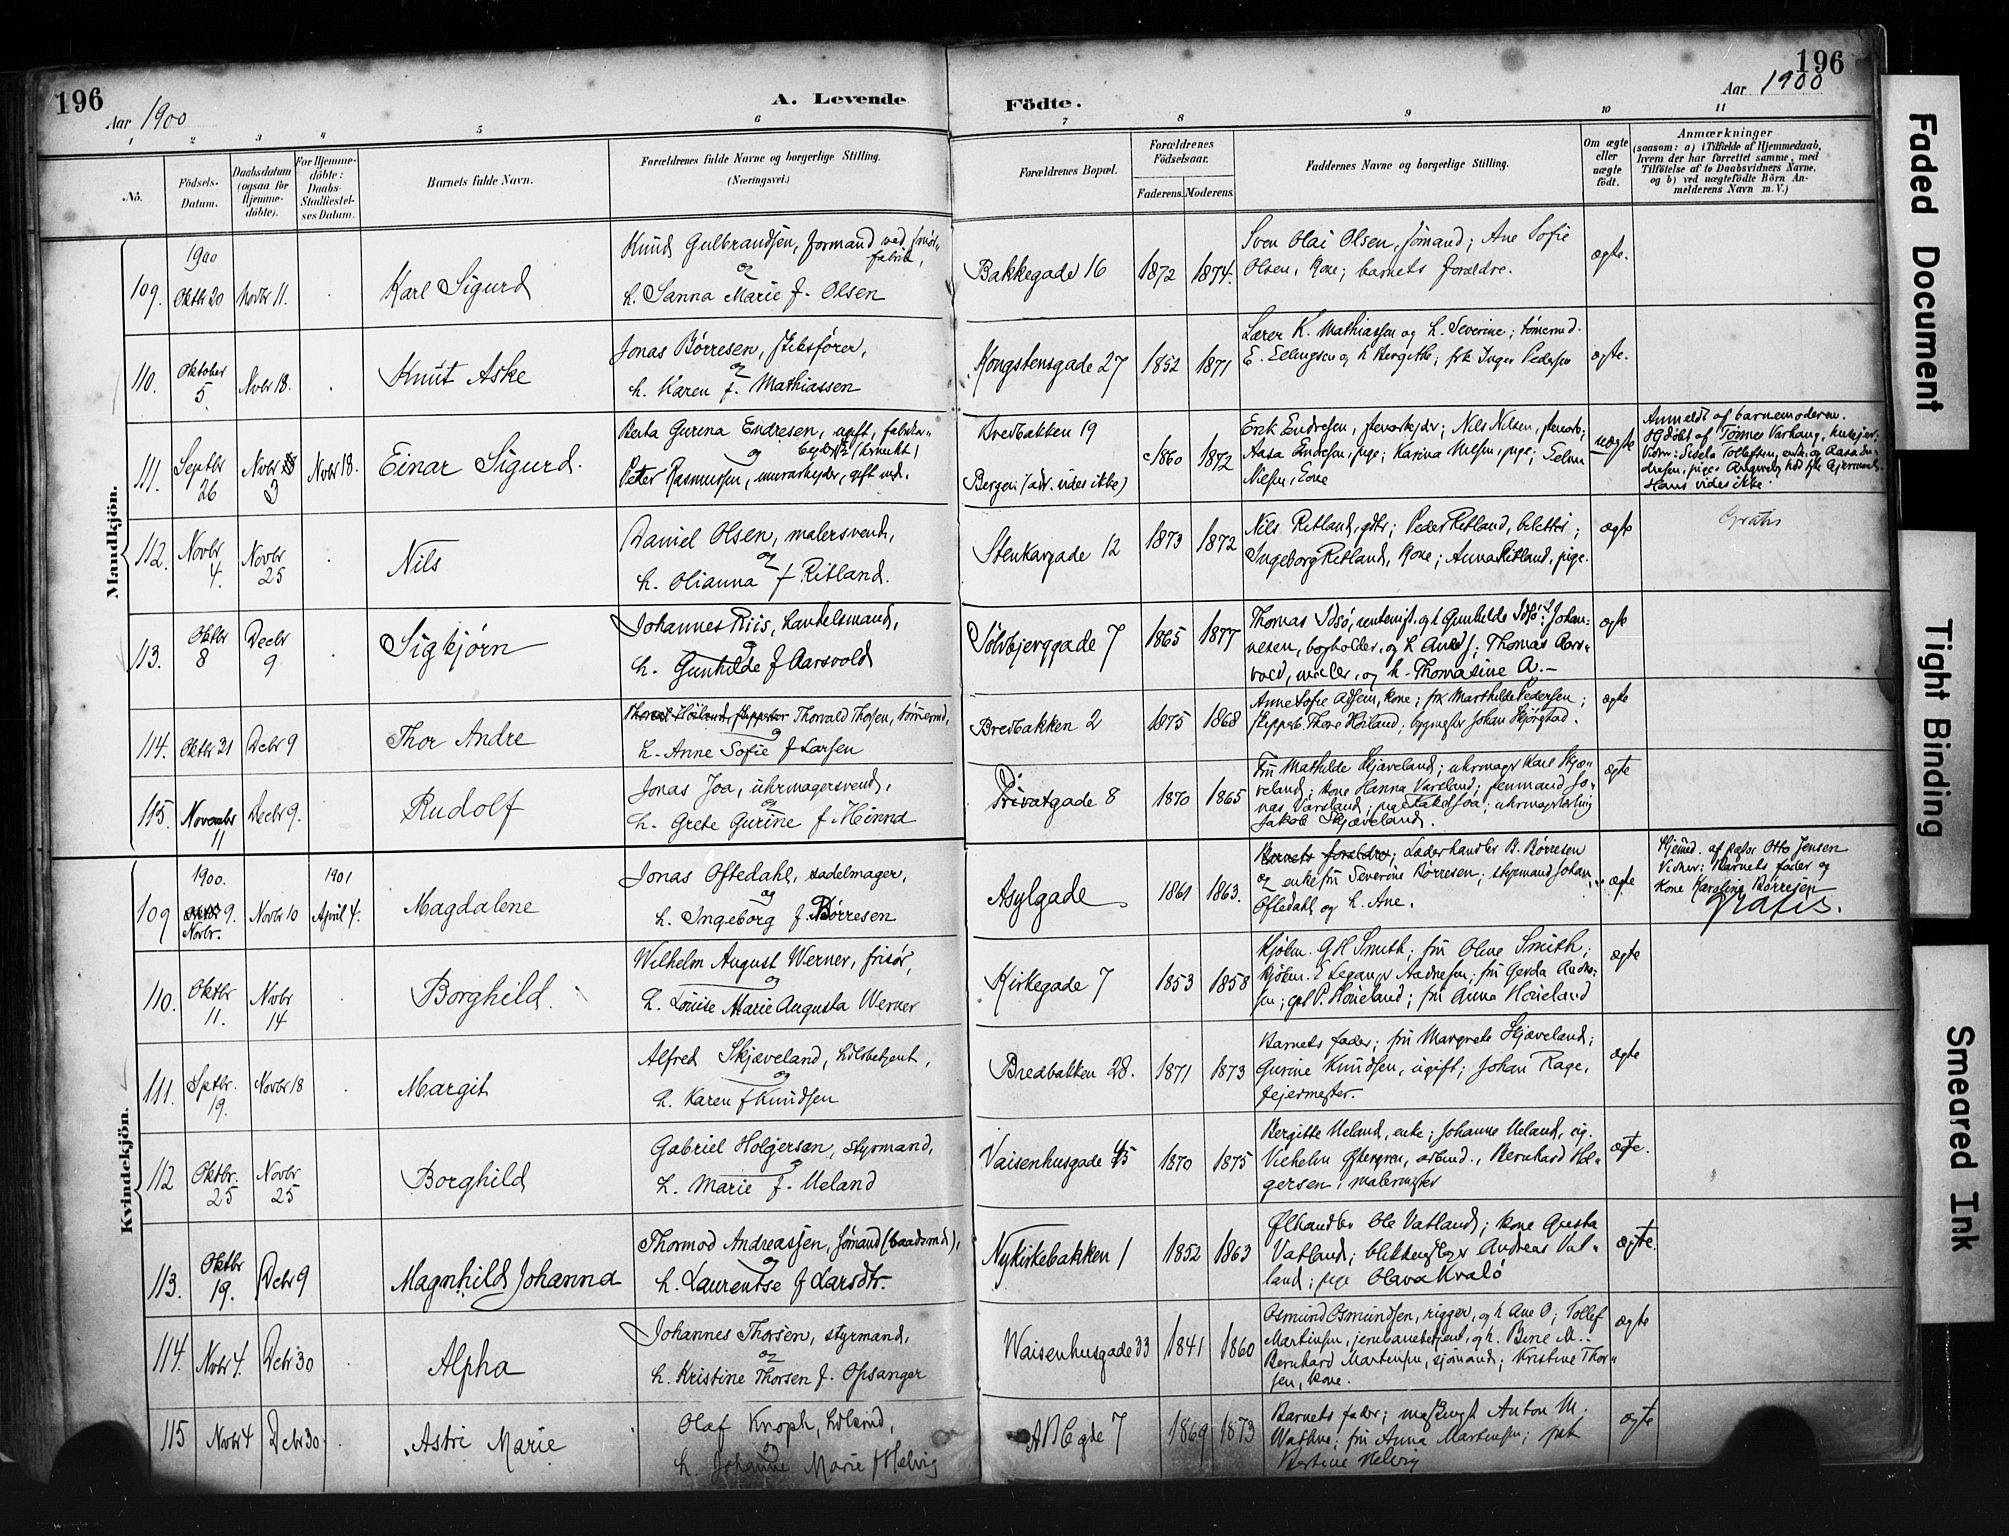 196
Aar 1900
A. Levende
Födte.
196
Aar 1900
1 2 3 4 5 6 7 8 9 10 11
Nö.
Födsels-
Datum.
Daabsdatum
(ogsaa for
Hjemme-
döbte).
For Hjemme-
döbte:
Daabs-
Stadfæstel-
ses Datum.
Barnets fulde Navn.
Forældrenes fulde Navne og borgerlige Stilling.
(Næringsvei.)
Forældrenes Bopæl.
Forældrenes
Födselsaar.
Faderens.
Moderens.
Faddernes Navne og borgerlige Stilling.
Om ægte
eller
uægte
födt.
Anmærkninger
(saasom: a) i Tilfælde af Hjemmedaab,
hvem der har forrettet samme, med
Tilföielse af to Daabsvidners Navne,
og b) ved uægtefödte Börn An-
melderens Navn m. V.)
Mandkjön.
1900
109. Oktbr 20 Novbr 11. Karl Sigurd
Knud Gulbrandsen, formand ved smör-
fabrik,
og
h. Sanna Marie f. Olsen
Bakkegade 16 1872 1874.
Sven Olai Olsen, sømand; Ane Sofie
Olsen, kone; barnets forældre.
ægte.
110. Oktober 5. Novbr 18. Knut Aske
Jonas Børresen, skibsfører,
og
h. Karen f. Mathiassen
Kongstensgade 27 1852 1871
Lærer K. Mathiassen og h. Severine; tømermd.
E. Ellingsen og h. Bergitte; frk Inger Pedersen
ægte.
111. Septbr 26 Novbr 3 Novbr 18. Einar Sigurd.
Berta Gurina Endresen, ugift, fabrikar-
og
Peter Rasmussen, murarbeider, gift md.
Bredbakken 19
Bergen (adr. vides ikke)
c1860 1872
Erik Endresen, stenarbeider; Nils Nilsen, stenarb;
Aasa Endresen, pige; Karina Nilsen, pige; Selma
Nilsen, kone
uægte
Anmeldt af barnemoderen.
Hjdöbt af Tønnes Varhaug,
Vidner: Sisela Tollefsen, enke og Aasa En-
dresen, pige.
Hans vides ikke.
112. Novbr 4. Novbr 25 Nils
Daniel Olsen, malersvend,
og
h. Olianna f Ritland.
Stenkargade 12 1873 1872
Nils Ritland, gdbr; Peder Ritland,
Ingeborg Ritland, kone; Anna Ritland, pige.
ægte
Gratis
113. Oktbr 8 Decbr 9 Sigbjørn
Johannes Riis, handelsmand,
og
h. Gunhilde f Aarsvold
Sølvbjerggade 7 1865 1877
Thomas Idsö, rentenist. og h Gunhilde Idsö; Johan-
nesen, bogholder, og h. Thomas Aars-
vold, maler, og h. Thomasine A.
ægte
114. Oktbr 21 Debr 9 Thor Andre
Thorvald Høiland, skipper Thorvald Thosen, tømermd,
og
h. Anne Sofie f Larsen
Bredbakken 2 1875 1868
Anne Sofie kone; frk Marthilde Pedersen;
skipper Thore Høiland; bygmester Johan Skjørestad.
ægte
115. November 11 Decbr 9. Rudolf
Jonas Joa, uhrmagersvend,
og
h. Grete Gurine f. Meinna
Privatgade 8 1870 1865
Fru Mathilde Skjæveland; uhrmager Karl Skjæ-
veland; kone Hanna Varsland; fenmand Jo-
nas Varsland; pige Rakel Joa; uhrmagerlærling
Jakob Skjæveland.
ægte
Kvindekjön.
1900. 1901
109 Oktbr 9. Novbr. Novbr 10 April 4. Magdalene
Jonas Oftedahl, sadelmager,
og
h. Ingeborg f Børresen
Asylgade 1861 1863.
Barnets forældre; Læderhandler B. Børresen
og enkefru Severine Børresen; styrmand Johan
Oftedahl og h. Ane.
ægte
Hjemd. af pastor Otto Jensen
Vidner: Barnets fader og
Kone Karoline Børresen
Gratis.
110. Oktbr 11. Novbr 14 Borghild.
Wilhelm August Werner, frisør,
og
h. Louise Marie Augusta Werner
Kirkegade 7 1853 1858
Kjøbm. G H Smith; fru Oline Smith;
kjøbm. E Leganger Aadnesen; fru Gerda Aadne-
sen; P. Houeland; fru Anna Houeland
ægte
111. Sptbr. 19. Novbr 18 Margit
Alfred Skjæveland, toldbetjent,
og
h. Karen f Knudsen
Bredbakken 28. 1871 1873
Barnets fader; fru Margrete Skjæveland;
Gurine Knudsen, ugift; Johan Rage,
fejermester.
ægte
112 Oktbr. 25 Novbr 25 Borghild
Gabriel Holgersen, styrmand,
og
h. Marie f. Ueland
Vaisenhusgade 45 1870 1875
Bergitte Ueland, enke; Johanne Ueland, ug.
Vilhelm Østergren, arbmd., Bernhard Hol-
gersen, malermester
ægte.
113. Oktbr 19. Debr 9 Magnhild Johanna
Thormod Andreassen, sømand (baadsmd),
og
h. Laurentse f Larsdtr.
Nykirkebakken 1 1852 1863
Ølhandler Ole Vatland; kone Gusta
Vatland; blikkenslager Andreas Vat-
land; pige Olava Kvalö
ægte.
114. Novbr 4. Debr 30 Alpha
Johannes Thorsen, styrmand,
og
h. Kristine Thorsen f. Opsanger
Waisenhusgade 33 1841 1860
Osmund Osmundsen, rigger, og h Ane O; Tollef
Martinsen, jernbanebetjent, og h. Bine M.
Bernhard Martinsen, sjømand; Kristine Thor-
sen, kone.
ægte
115 Novbr 4 Debr 30. Astri Marie
Olaf Knoph,
og
h. Johanne Marie f Helvig
ABC gde 7 1869 1873
Barnets fader; Anton M.
Wathne; fru Anna Martinsen;
Bertine Helvig
ægte
Faded Document
Tight Binding
Smeared Ink